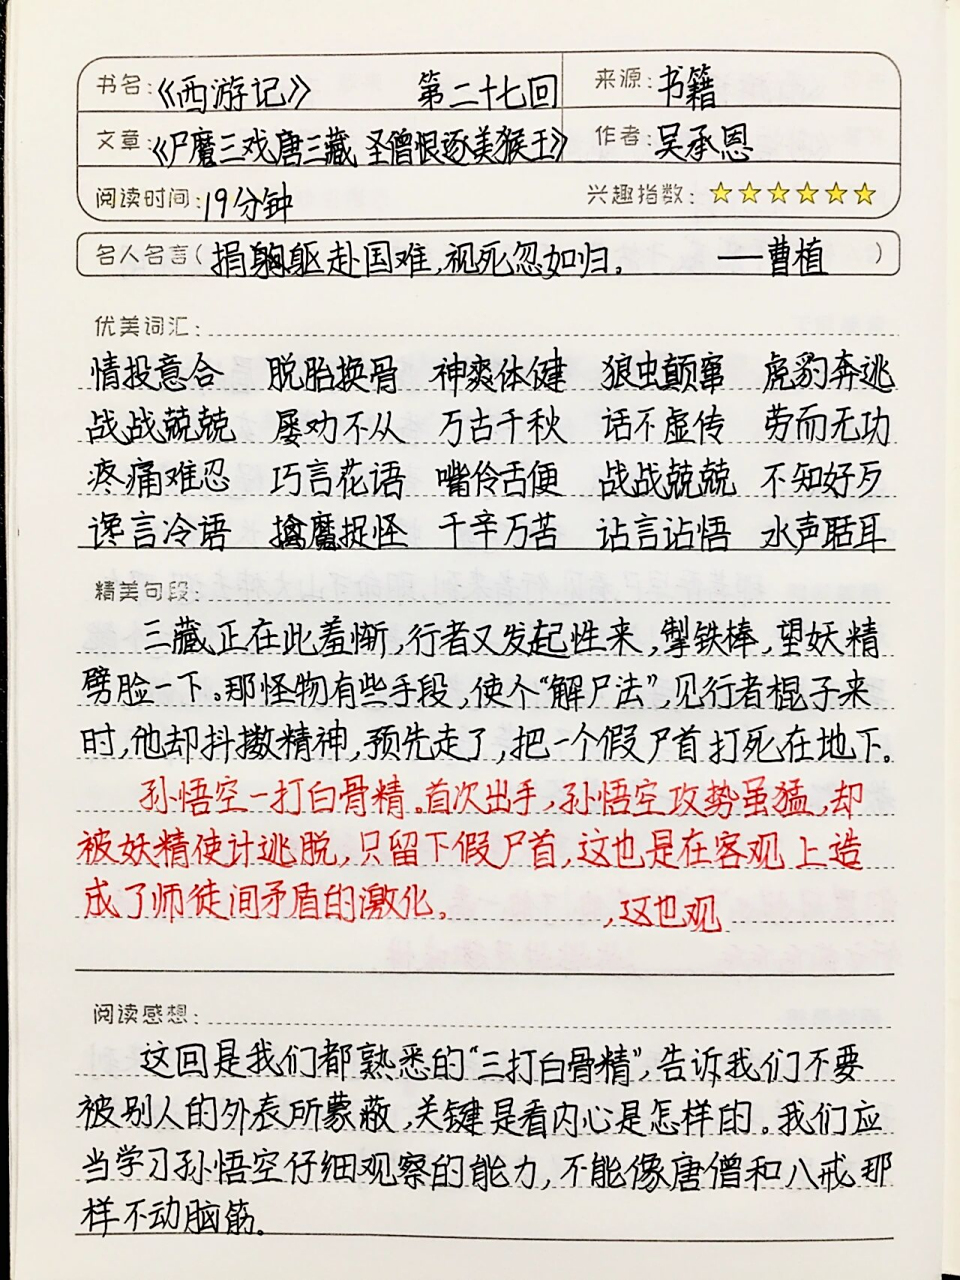 书名:《西游记》 第二十七回 来源:书籍
文章:《尸魔三戏唐三藏 圣僧恨逐美猴王》 作者:吴承恩
阅读时间:19分钟 兴趣指数:
名人名言(捐躯赴国难,视死忽如归。 ——曹植)
优美词汇:
情投意合 脱胎换骨 神爽体健 狼虫颠窜 虎豹奔逃
战战兢兢 屡劝不从 万古千秋 话不虚传 劳而无功
疼痛难忍 巧言花语 嘴伶舌便 战战兢兢 不知好歹
谗言冷语 擒魔捉怪 千辛万苦 诂言诂悟 水声聒耳
精美句段:
三藏正在此羞惭,行者又发起性来,掣铁棒,望妖精
劈脸一下。那怪物有些手段,使个“解尸法”,见行者棍子来
时,他却抖擞精神,预先走了,把一个假尸首打死在地下。
孙悟空一打白骨精。首次出手,孙悟空攻势虽猛,却
被妖精使计逃脱,只留下假尸首,这也是在客观上造
成了师徒间矛盾的激化。 ,这也观
阅读感想:
这回是我们都熟悉的“三打白骨精”,告诉我们不要
被别人的外表所蒙蔽,关键是看内心是怎样的。我们应
当学习孙悟空仔细观察的能力,不能像唐僧和八戒那
样不动脑筋。